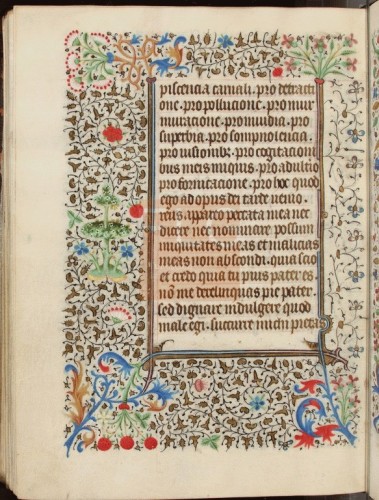 piscencia carnali. pro detracti
one. pro pollucione. pro mur
muracione. pro invidia. pro
superbia. pro sompnolencia.
pro iusionibus. pro cogitationi
bus meis iniquis. pro adultio
pro fornicacione. pro hoc quod
ego ad opus dei tarde venio.
reus appareo peccata mea nec
dicere nec nominare possum
iniquitates meas et malicias
meas non abscondi. quia scio
et credo quia tu pius pater es
nō me derelinquas pie pater
sed dignare indulgere quod
male egi. succurre michi pietas